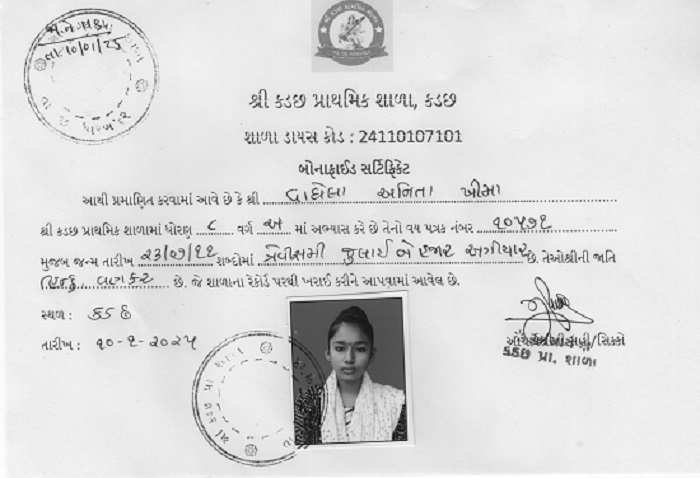 તા.૧૦/૦૧/૨૫
શ્રી કડછ પ્રાથમિક શાળા, કડછ
શાળા ડાયસ કોડ : 24110107101
બોનાફાઈડ સર્ટિફિકેટ
આથી પ્રમાણિત કરવામાં આવે છે કે શ્રી વાઘેલા અનિતા ખીમા
શ્રી કડછ પ્રાથમિક શાળામાં ધોરણ ૮ વર્ગ અ માં અભ્યાસ કરે છે તેનો વય પત્રક નંબર ૧૦૫૭૧
મુજબ જન્મ તારીખ ૨૩/૭/૧૧ શબ્દોમાં ત્રેવીસમી જુલાઈ બે હજાર અગીયાર છે. તેઓશ્રીની જાતિ
હિન્દુ વણકર છે. જે શાળાના રેકોર્ડ પરથી ખરાઈ કરીને આપવામાં આવેલ છે.
સ્થળ : કડછ
તારીખ : ૧૦-૧-૨૦૨૫
/સિક્કો
કડછ પ્રા. શાળા